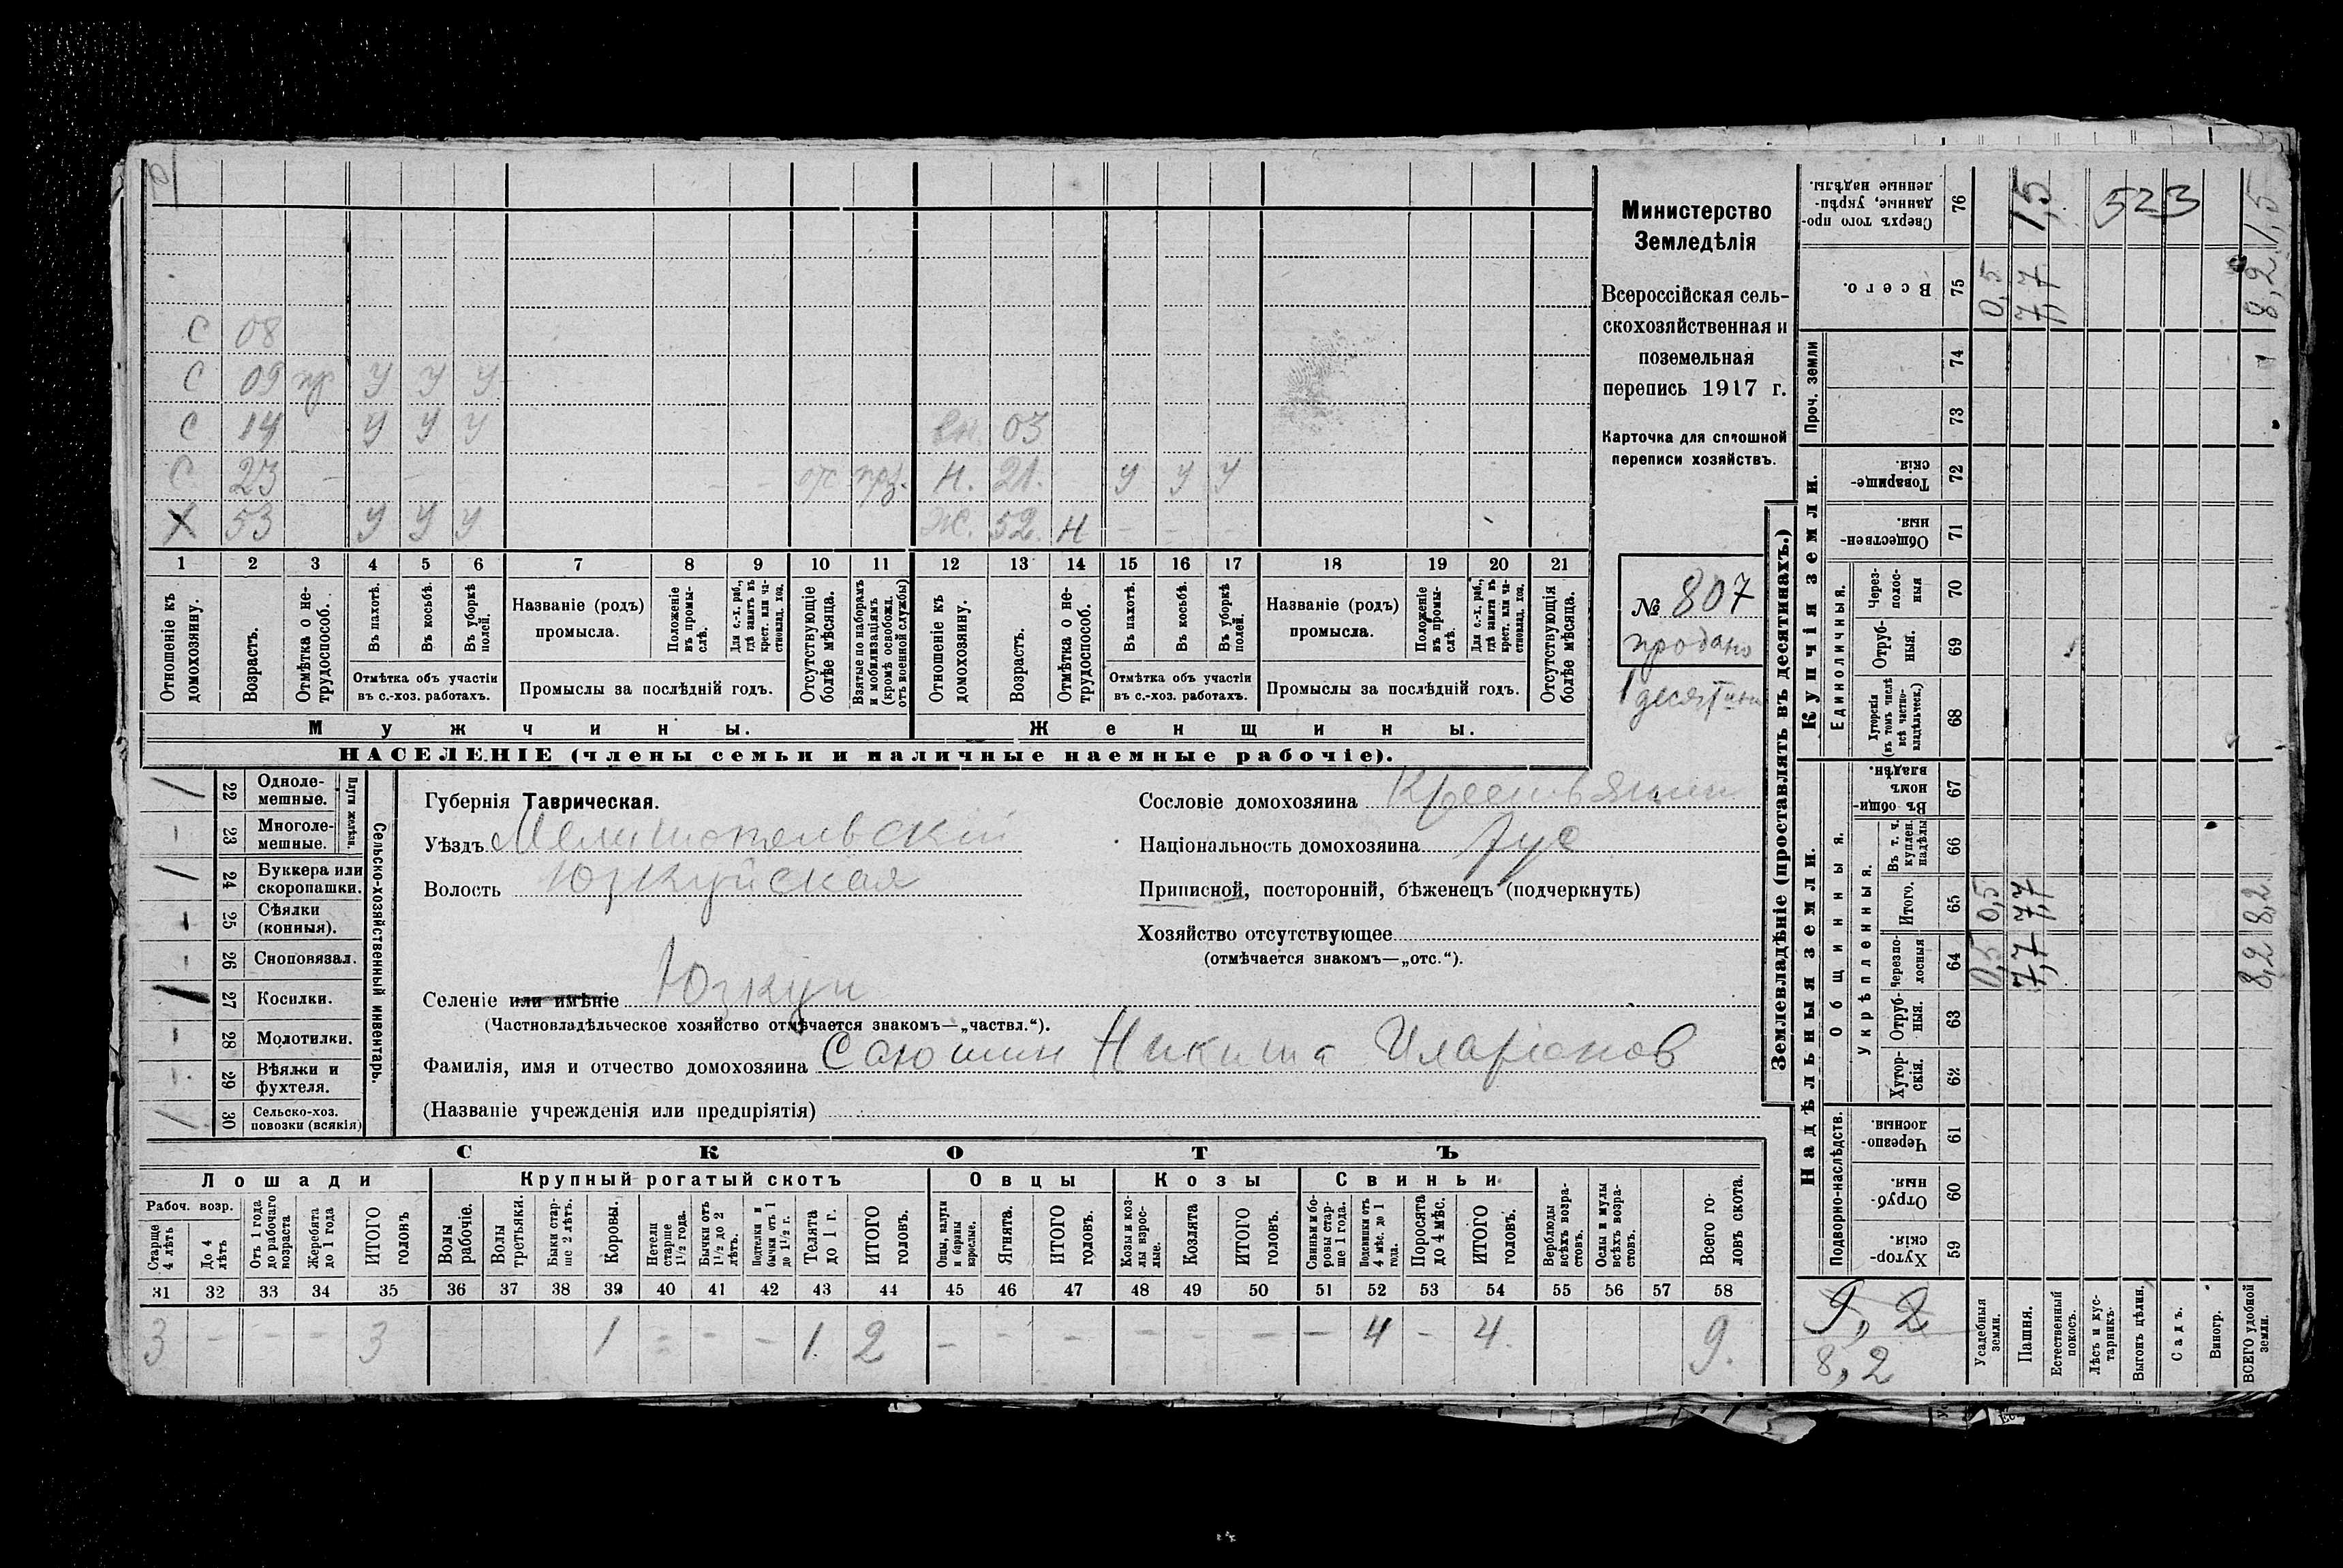 С 08
С 09 нр У У У
С 14 У У У вн. 03
С 23 – – – – – от прз. Н. 21. У У У
Х 53 У У У Ж. 52. Н – – –
1 2 3 4 5 6 7 8 9 10 11 12 13 14 15 16 17 18 19 20 21
Отношеніе къ домохозяину.
Возрастъ.
Отмѣтка о нетрудоспособ.
Въ пахотѣ.
Въ косьбѣ.
Въ уборкѣ полей.
Отмѣтка объ участіи въ с.-хоз. работахъ.
Названіе (родъ) промысла.
Положеніе въ промыслѣ.
Для с.-х. раб., гдѣ занятъ въ крест. или частновлад. хоз.
Промыслы за послѣдній годъ.
Отсутствующіе болѣе мѣсяца.
Взятые по наборамъ и мобилизаціямъ (кромѣ освобожд. отъ военной службы)
Отношеніе къ домохозяину.
Возрастъ.
Отмѣтка о нетрудоспособ.
Въ пахотѣ.
Въ косьбѣ.
Въ уборкѣ полей.
Отмѣтка объ участіи въ с.-хоз. работахъ.
Названіе (родъ) промысла.
Положеніе въ промыслѣ.
Для с.-х. раб., гдѣ занята въ крест. или частновлад. хоз.
Промыслы за послѣдній годъ.
Отсутствующія болѣе мѣсяца.
Мужчины. Женщины.
НАСЕЛЕНІЕ (члены семьи и наличные наемные рабочіе).
Министерство
Земледѣлія
Всероссійская сель-
скохозяйственная и
поземельная
перепись 1917 г.
Карточка для сплошной
переписи хозяйствъ.
№ 807
продано
1 десятина
/ 22 Одноле-мешные.
– 23 Многоле-мешные.
Плуги желѣзн.
/ 24 Буккера или скоропашки.
– 25 Сѣялки (конныя).
– 26 Сноповязал.
/ 27 Косилки.
– 28 Молотилки.
– 29 Вѣялки и фухтеля.
/ 30 Сельско-хоз. повозки (всякія)
Сельско-хозяйственный инвентарь.
Губернія Таврическая.
Уѣздъ Мелитопольскій
Волость Юзкуйская
Селеніе или имѣніе Юзкуи
(Частновладѣльческое хозяйство отмѣчается знакомъ—„частвл.“).
Фамилія, имя и отчество домохозяина Саюшин Никита Иларіонов
(Названіе учрежденія или предпріятія)
Сословіе домохозяина Крестьянин
Національность домохозяина Рус
Приписной, посторонній, бѣженецъ (подчеркнуть)
Хозяйство отсутствующее
(отмѣчается знакомъ—„отс.“).
СКОТЪ
Лошади Крупный рогатый скотъ Овцы Козы Свиньи
Рабоч. возр.
Старше 4 лѣтъ
До 4 лѣтъ
Отъ 1 года до рабочаго возраста
Жеребята до 1 года
ИТОГО головъ
Волы рабочіе.
Волы третьяки.
Быки старше 2 лѣтъ.
Коровы.
Нетели старше 1½ года.
Бычки отъ 1½ до 2 лѣтъ.
Подтелки и бычки отъ 1 до 1½ г.
Телята до 1 г.
ИТОГО головъ.
Овцы, валухи и бараны взрослые.
Ягнята.
ИТОГО головъ.
Козы и козлы взрослые.
Козлята
ИТОГО головъ.
Свиньи и боровы старше 1 года.
Подсвинки отъ 4 мѣс. до 1 года.
Поросята до 4 мѣс.
ИТОГО головъ.
Верблюды всѣхъ возрастовъ.
Ослы и мулы всѣхъ возрастовъ.
Всего головъ скота.
31 32 33 34 35 36 37 38 39 40 41 42 43 44 45 46 47 48 49 50 51 52 53 54 55 56 57 58
3 – – – 3 1 – – – 1. 2 – – – – – – – 4 – 4. 9.
Землевладѣніе (проставлять въ десятинахъ.)
Надѣльныя земли. Купчія земли. Проч. земли
Подворно-наслѣдств. Общинныя. Укрѣпленныя. Единоличныя.
Хуторскія. 59
Отрубныя. 60
Черезполосныя. 61
Хуторскія. 62
Отрубныя. 63
Черезполосныя 64 0,5 7,7 8,2
Итого. 65 0,5 7,7 8,2
Въ т. ч. куплен. надѣлы 66
Въ общинномъ владѣн. 67
Хуторскія (въ томъ числѣ всѣ частновладѣльческ.) 68
Отрубныя. 69
Черезполосныя 70
Общественныя. 71
Товарищескія. 72
73
74
Всего. 75 0,5 7,7 8,2
Сверхъ того проданные, укрѣпленные надѣлы. 76 1,5 523 1,5
9,2
8,2
Усадебныя земли.
Пашня.
Естественный покосъ.
Лѣсъ и кустарникъ.
Выгонъ цѣлин.
Садъ.
Виногр.
ВСЕГО удобной земли.